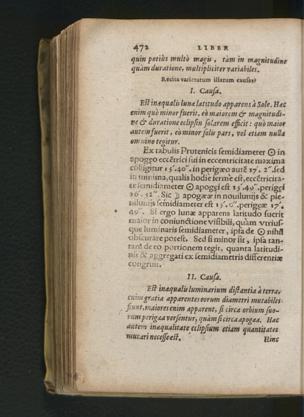 472 LIBER
quin potius multò magis, tàm in magnitudine
quàm duratione, multipliciter variabiles.
Recita varietatum illarum causas?
I. Causa.
Est inaqualis lunæ latitudo apparens à Sole. Hæc
enim quò minor fuerit, eò maiorem & magnitudi-
ne & duratione eclipsin solarem efficit: quò maior
autem fuerit, eò minor solis pars, vel etiam nulla
omnino tegitur.
Ex tabulis Prutenicis semidiameter ☉ in
apogęo eccẽtrici sui in eccentricitate maxima
colligitur 15′. 40″. in perigæo autẽ
in minima, qualis hodie fermè est, eccẽtricita-
te semidiameter ☉ apogęi est 15′. 49″. perigęi
Sic ☽ apogææ in nouilunijs & ple-
nilunijs semidiameter est 15′. 0″. perigeæ 17′.
49″. Si ergo lunæ apparens latitudo fuerit
maior in coniunctione visibili, quàm vtrius-
que luminaris semidiameter, ipsa de ☉ nihil
obscurare potest. Sed si minor sit, ipsa tan-
tam de eo portionem tegit, quanta latitudi-
nis & aggregati ex semidiametris differentiæ
congruit.
II. Causa.
Est inaqualis luminarium distantia à terra,
cuius gratia apparentes eorum diametri mutabiles
fiunt, maiores enim apparent, si circa orbium suo-
rum perigæa versentur, quàm si circa apogæa. Hac
autem inæqualitate eclipsium etiam quantitates
mutari necesse est.
Eius